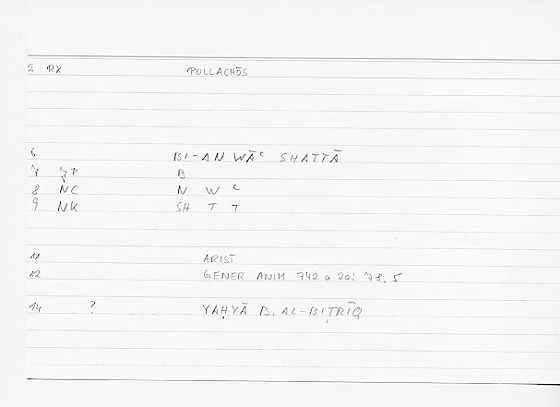 2 RX POLLACHŌS
6 BI-ANWĀʿ SHATTĀ
7 B
8 NC N W ʿ
9 NK SH T T
11 ARIST
12 GENER ANIM 742 a 20; 78.5
14 ? YAḤYĀ B. AL-BIṬRĪQ